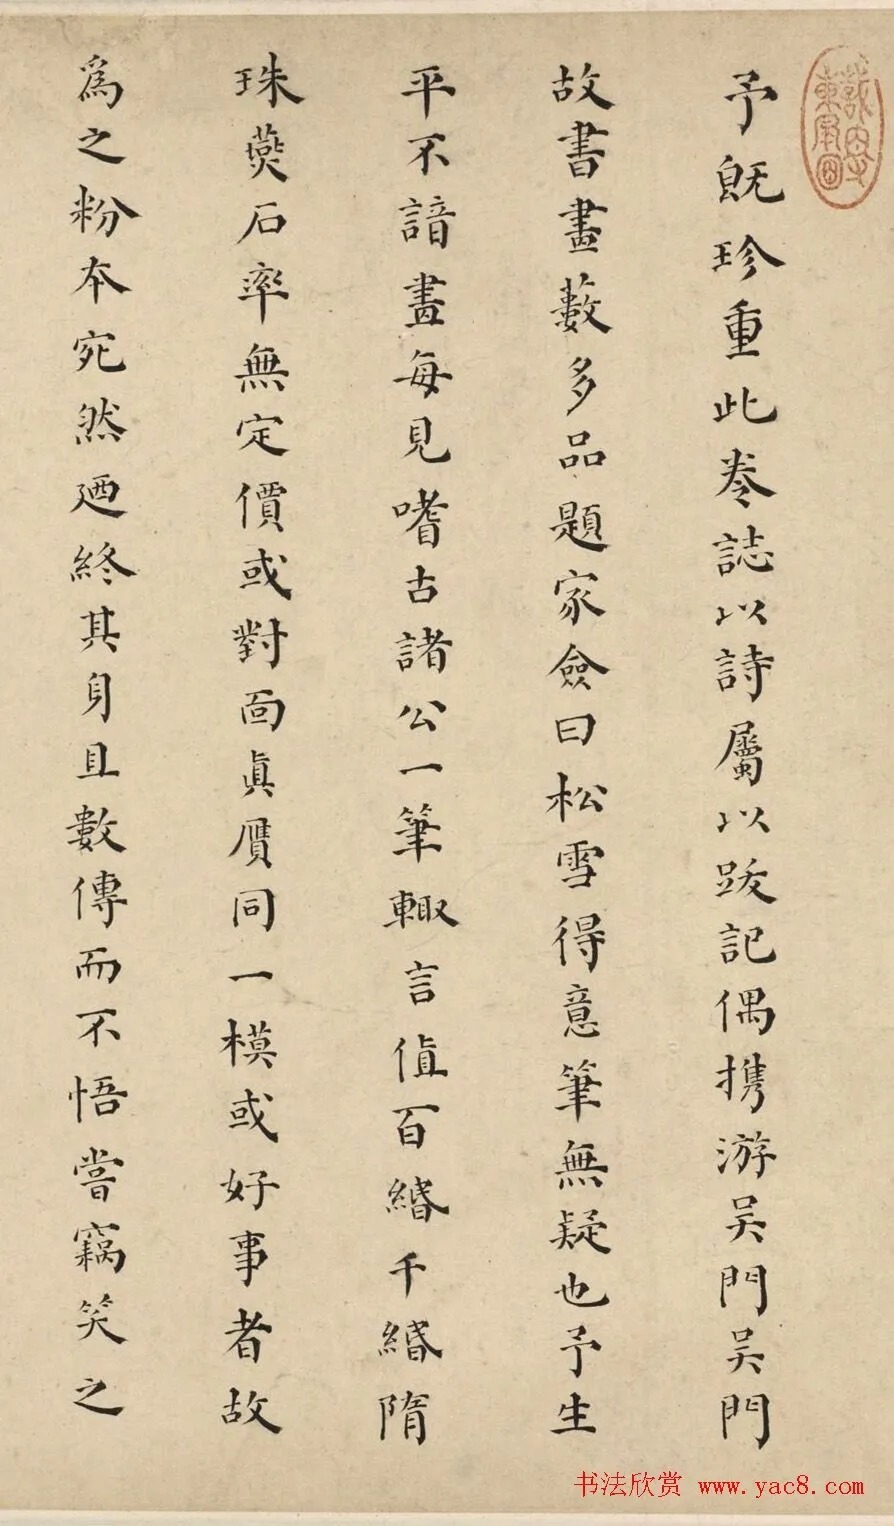 予旣珍重此卷誌以詩屬以跋記偶携游吴門吴門
故書畫藪多品題家僉曰松雪得意筆無疑也予生
平不諳畫每見嗜古諸公一筆輙言值百緡千緡隋
珠燕石率無定價或對面眞贋同一模或好事者故
爲之粉夲宛然廼終其身且數傳而不悟嘗竊笑之
书法欣赏 www.yac8.com